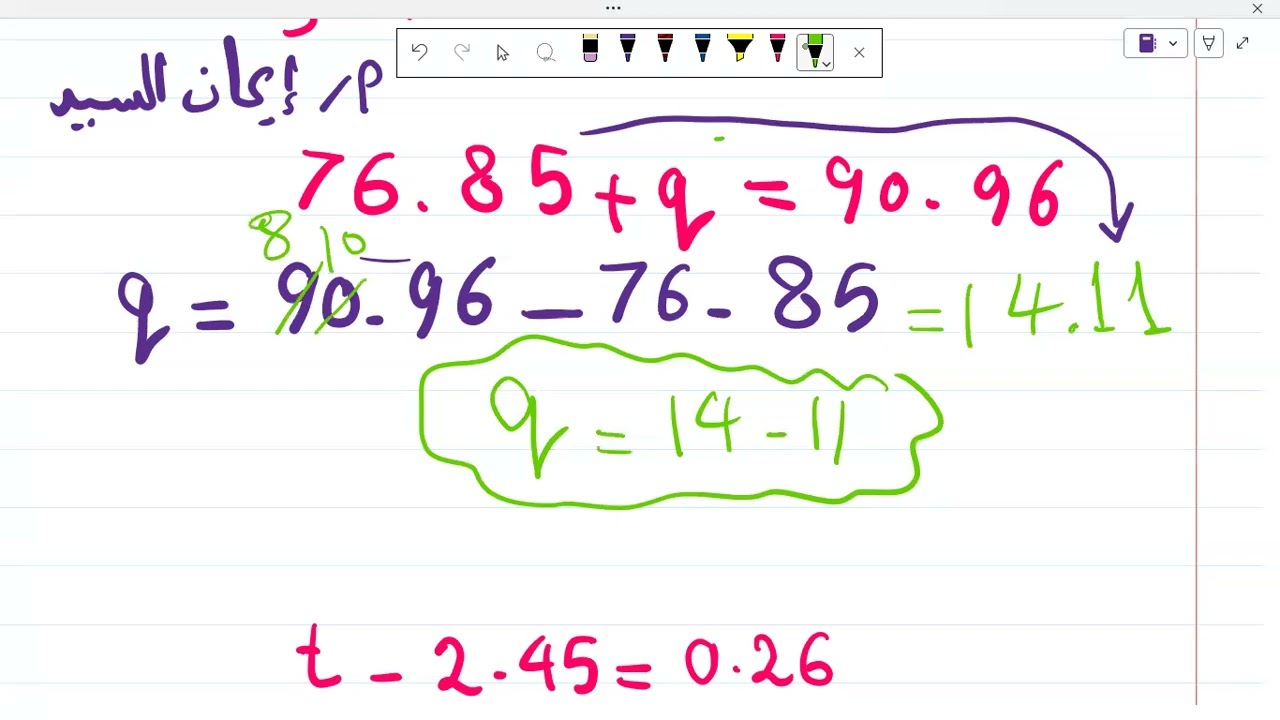 م/ إيمان السيد
76.85 + q = 90.96
8 10
q = 90.96 - 76.85 = 14.11
q = 14.11
t - 2.45 = 0.26